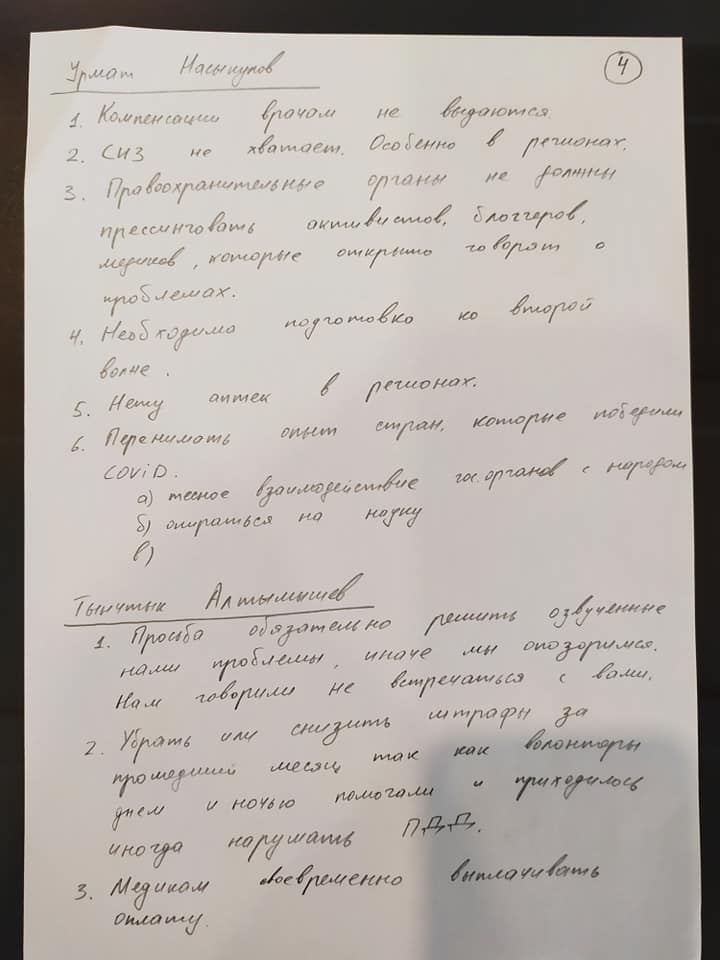 Урмат Насыкулов
4
1. Компенсации врачам не выдаются.
2. СИЗ не хватает. Особенно в регионах.
3. Правоохранительные органы не должны
прессинговать активистов, блоггеров,
медиков, которые открыто говорят о
проблемах.
4. Необходимо подготовко ко второй
волне.
5. Нету аптек в регионах.
6. Перенимать опыт стран, которые победили
COViD.
а) тесное взаимодействие гос.органов с народом
б) опираться на науку
в)
Тынчтык Алтымышев
1. Просьба обязательно решить озвученные
нами проблемы, иначе мы опозоримся.
Нам говорили не встречаться с вами.
2. Убрать или снизить штрафы за
прошедший месяц так как волонтеры
днем и ночью помогали и приходилось
иногда нарушать ПДД.
3. Медикам своевременно выплачивать
оплату.